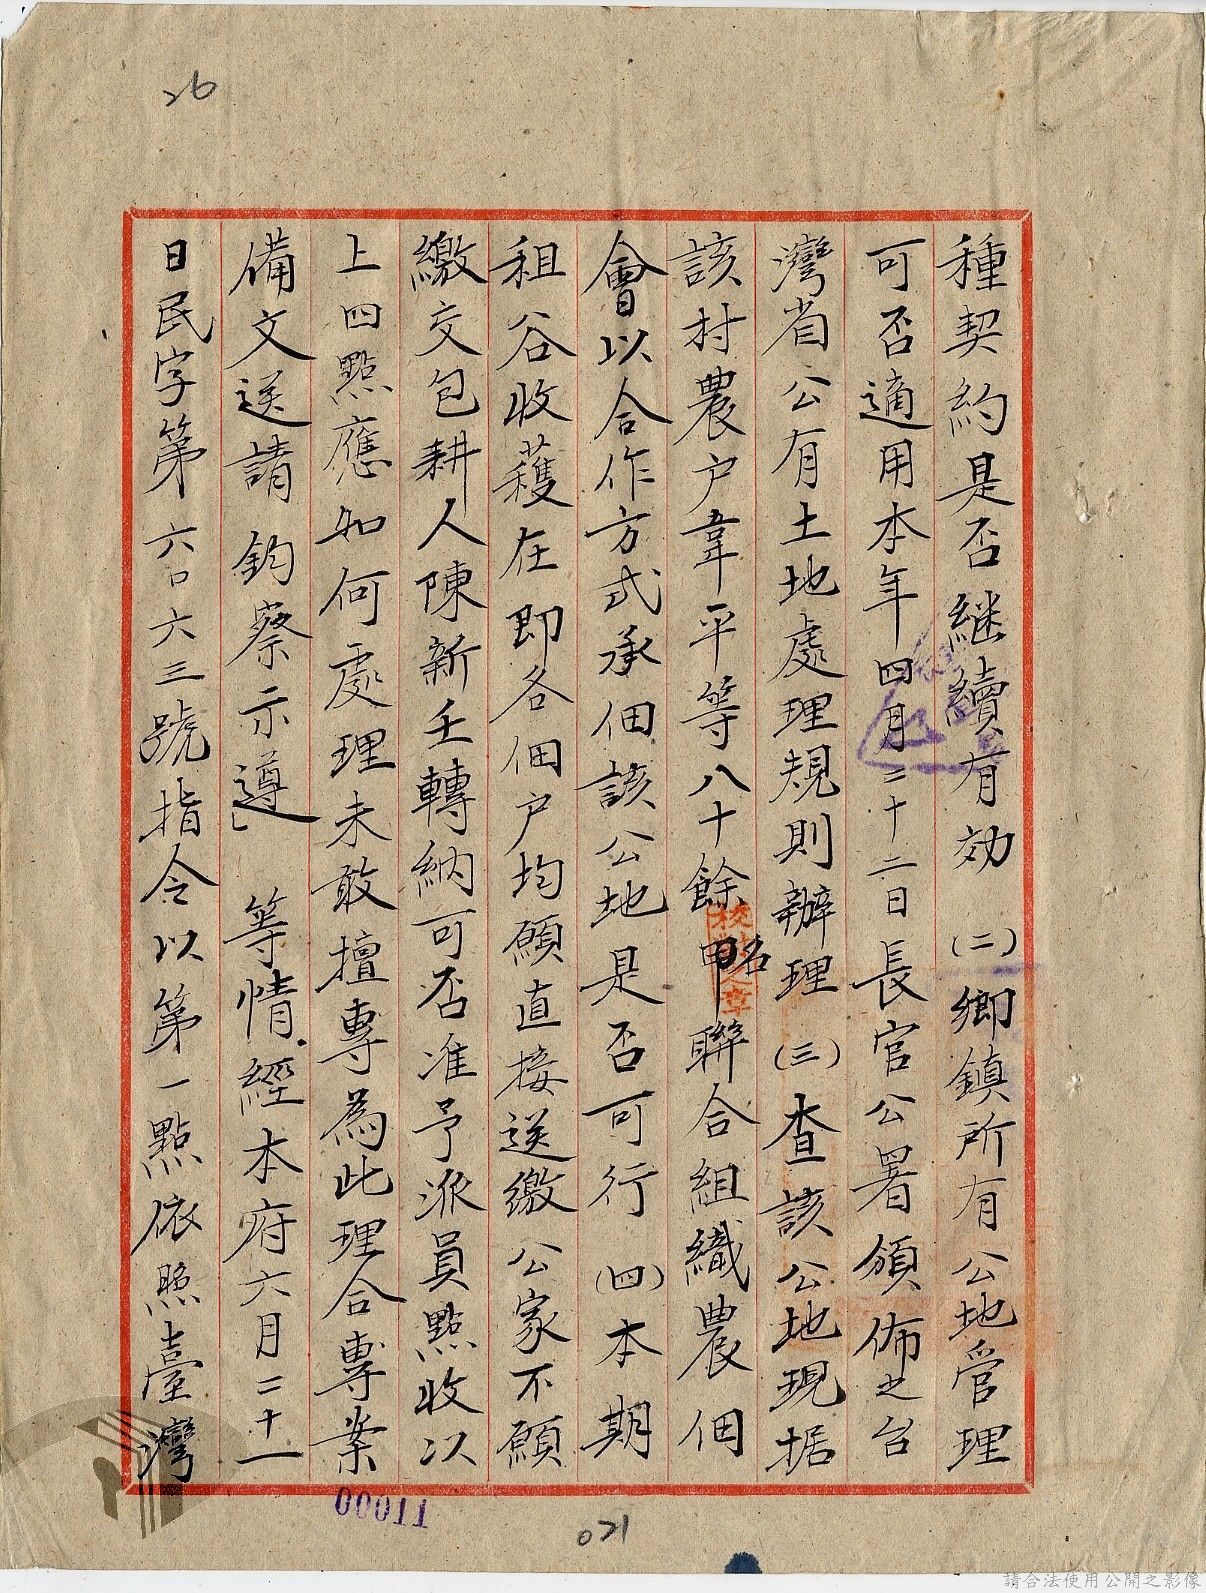 26
種契約是否継續有効(二)鄉鎮所有公地管理
可否適用本年四月二十二日長官公署頒佈之台
灣省公有土地處理規則辦理(三)查該公地現据
該村農户韋平等八十餘名聯合組織農佃
會以合作方式承佃該公地是否可行(四)本期
租谷收穫在即各佃户均願直接送繳公家不願
繳交包耕人陳新壬轉納可否准予派員點收以
上四點應如何處理未敢擅專為此理合專案
備文送請鈞察示遵」等情經本府六月二十一
日民字第六〇六三號指令以第一點依照臺灣
00011
021
請合法使用公開之影像